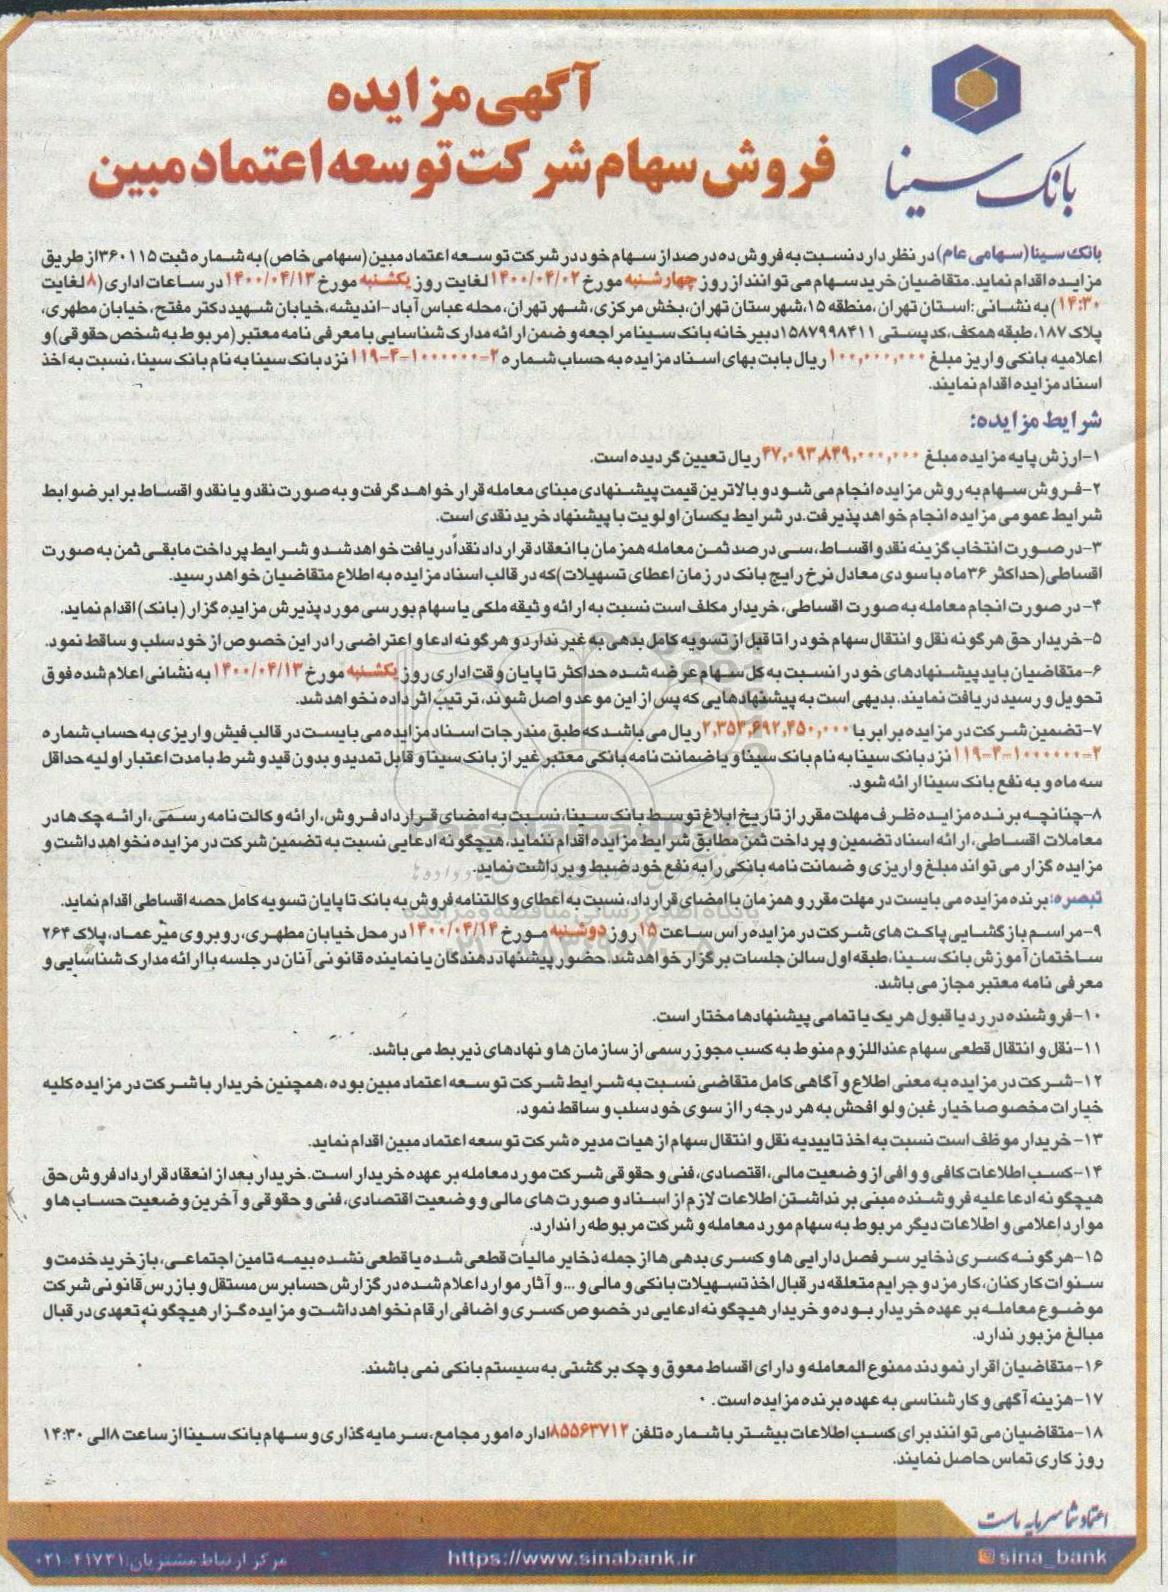 آگهی مزایده
فروش سهام شرکت توسعه اعتماد مبین
بانک سینا
بانک سینا (سهامی عام) در نظر دارد نسبت به فروش ده درصد از سهام خود در شرکت توسعه اعتماد مبین (سهامی خاص) به شماره ثبت ۳۶۰۱۱۵ از طریق
مزایده اقدام نماید. متقاضیان خرید سهام می توانند از روز چهارشنبه مورخ ۱۴۰۰/۰۴/۰۲ لغایت روز یکشنبه مورخ ۱۴۰۰/۰۴/۱۳ در ساعات اداری (۸ لغایت
۱۴:۳۰) به نشانی: استان تهران، منطقه ۱۵، شهرستان تهران، بخش مرکزی، شهر تهران، محله عباس آباد-اندیشه، خیابان شهید دکتر مفتح، خیابان مطهری،
پلاک ۱۸۷، طبقه همکف، کدپستی ۱۵۸۷۹۹۸۴۱۱ دبیرخانه بانک سینا مراجعه و ضمن ارائه مدارک شناسایی با معرفی نامه معتبر (مربوط به شخص حقوقی) و
اعلامیه بانکی واریز مبلغ ۱۰۰,۰۰۰,۰۰۰ ریال بابت بهای اسناد مزایده به حساب شماره ۲-۱۰۰۰۰۰۰-۴-۱۱۹ نزد بانک سینا به نام بانک سینا، نسبت به اخذ
اسناد مزایده اقدام نمایند.
شرایط مزایده:
۱-ارزش پایه مزایده مبلغ ۴۷,۰۹۳,۸۴۹,۰۰۰,۰۰۰ ریال تعیین گردیده است.
۲-فروش سهام به روش مزایده انجام می شود و بالاترین قیمت پیشنهادی مبنای معامله قرار خواهد گرفت و به صورت نقد و یا نقد و اقساط برابر ضوابط
شرایط عمومی مزایده انجام خواهد پذیرفت. در شرایط یکسان اولویت با پیشنهاد خرید نقدی است.
۳-در صورت انتخاب گزینه نقد و اقساط، سی درصد ثمن معامله همزمان با انعقاد قرارداد نقداً دریافت خواهد شد و شرایط پرداخت مابقی ثمن به صورت
اقساطی (حداکثر ۳۶ ماه با سودی معادل نرخ رایج بانک در زمان اعطای تسهیلات) که در قالب اسناد مزایده به اطلاع متقاضیان خواهد رسید.
۴- در صورت انجام معامله به صورت اقساطی، خریدار مکلف است نسبت به ارائه وثیقه ملکی یا سهام بورسی مورد پذیرش مزایده گزار (بانک) اقدام نماید.
۵-خریدار حق هرگونه نقل و انتقال سهام خود را تا قبل از تسویه کامل بدهی به غیر ندارد و هرگونه ادعا و اعتراضی را در این خصوص از خود سلب و ساقط نمود.
۶-متقاضیان باید پیشنهادهای خود را نسبت به کل سهام عرضه شده حداکثر تا پایان وقت اداری روز یکشنبه مورخ ۱۴۰۰/۰۴/۱۳ به نشانی اعلام شده فوق
تحویل و رسید دریافت نمایند. بدیهی است به پیشنهادهایی که پس از این موعد واصل شوند، ترتیب اثر داده نخواهد شد.
۷-تضمین شرکت در مزایده برابر با ۲,۳۵۴,۶۹۲,۴۵۰,۰۰۰ ریال می باشد که طبق مندرجات اسناد مزایده می بایست در قالب فیش واریزی به حساب شماره
۲-۱۰۰۰۰۰۰-۴-۱۱۹ نزد بانک سینا به نام بانک سینا و یا ضمانت نامه بانکی معتبر غیر از بانک سینا و قابل تمدید و بدون قید و شرط با مدت اعتبار اولیه حداقل
سه ماه و به نفع بانک سینا ارائه شود.
۸-چنانچه برنده مزایده ظرف مهلت مقرر از تاریخ ابلاغ توسط بانک سینا، نسبت به امضای قرارداد فروش، ارائه وکالت نامه رسمی، ارائه چک ها در
معاملات اقساطی، ارائه اسناد تضمین و پرداخت ثمن مطابق شرایط مزایده اقدام ننماید، هیچگونه ادعایی نسبت به تضمین شرکت در مزایده نخواهد داشت و
مزایده گزار می تواند مبلغ واریزی و ضمانت نامه بانکی را به نفع خود ضبط و برداشت نماید.
تبصره: برنده مزایده می بایست در مهلت مقرر و همزمان با امضای قرارداد، نسبت به اعطای وکالتنامه فروش به بانک تا پایان تسویه کامل حصه اقساطی اقدام نماید.
۹-مراسم بازگشایی پاکت های شرکت در مزایده راس ساعت ۱۵ روز دوشنبه مورخ ۱۴۰۰/۰۴/۱۴ در محل خیابان مطهری، روبروی میرعماد، پلاک ۲۶۴
ساختمان آموزش بانک سینا، طبقه اول سالن جلسات برگزار خواهد شد. حضور پیشنهاد دهندگان یا نماینده قانونی آنان در جلسه با ارائه مدارک شناسایی و
معرفی نامه معتبر مجاز می باشد.
۱۰-فروشنده در رد یا قبول هر یک یا تمامی پیشنهادها مختار است.
۱۱-نقل و انتقال قطعی سهام عنداللزوم منوط به کسب مجوز رسمی از سازمان ها و نهادهای ذیربط می باشد.
۱۲-شرکت در مزایده به معنی اطلاع و آگاهی کامل متقاضی نسبت به شرایط شرکت توسعه اعتماد مبین بوده، همچنین خریدار با شرکت در مزایده کلیه
خیارات مخصوصا خیار غبن ولو افحش به هر درجه را از سوی خود سلب و ساقط نمود.
۱۳-خریدار موظف است نسبت به اخذ تاییدیه نقل و انتقال سهام از هیات مدیره شرکت توسعه اعتماد مبین اقدام نماید.
۱۴-کسب اطلاعات کافی و وافی از وضعیت مالی، اقتصادی، فنی و حقوقی شرکت مورد معامله بر عهده خریدار است. خریدار بعد از انعقاد قرارداد فروش حق
هیچگونه ادعا علیه فروشنده مبنی بر نداشتن اطلاعات لازم از اسناد و صورت های مالی و وضعیت اقتصادی، فنی و حقوقی و آخرین وضعیت حساب ها و
موارد اعلامی و اطلاعات دیگر مربوط به سهام مورد معامله و شرکت مربوطه را ندارد.
۱۵-هرگونه کسری ذخایر سرفصل دارایی ها و کسری بدهی ها از جمله ذخایر مالیات قطعی شده یا قطعی نشده بیمه تامین اجتماعی، بازخرید خدمت و
سنوات کارکنان، کارمزد و جرایم متعلقه در قبال اخذ تسهیلات بانکی و مالی و... و آثار موارد اعلام شده در گزارش حسابرس مستقل و بازرس قانونی شرکت
موضوع معامله بر عهده خریدار بوده و خریدار هیچگونه ادعایی در خصوص کسری و اضافی ارقام نخواهد داشت و مزایده گزار هیچگونه تعهدی در قبال
مبالغ مزبور ندارد.
۱۶-متقاضیان اقرار نمودند ممنوع المعامله و دارای اقساط معوق و چک برگشتی به سیستم بانکی نمی باشند.
۱۷-هزینه آگهی و کارشناسی به عهده برنده مزایده است.
۱۸-متقاضیان می توانند برای کسب اطلاعات بیشتر با شماره تلفن ۸۵۵۶۳۷۱۲ اداره امور مجامع، سرمایه گذاری و سهام بانک سینا از ساعت ۸ الی ۱۴:۳۰
روز کاری تماس حاصل نمایند.
ParsNamadData
پایگاه اطلاع رسانی مناقصه و مزایده
اعتماد شما سرمایه ماست
sina_bank
https://www.sinabank.ir
مرکز ارتباط مشتریان: ۴۱۷۳۱-۰۲۱